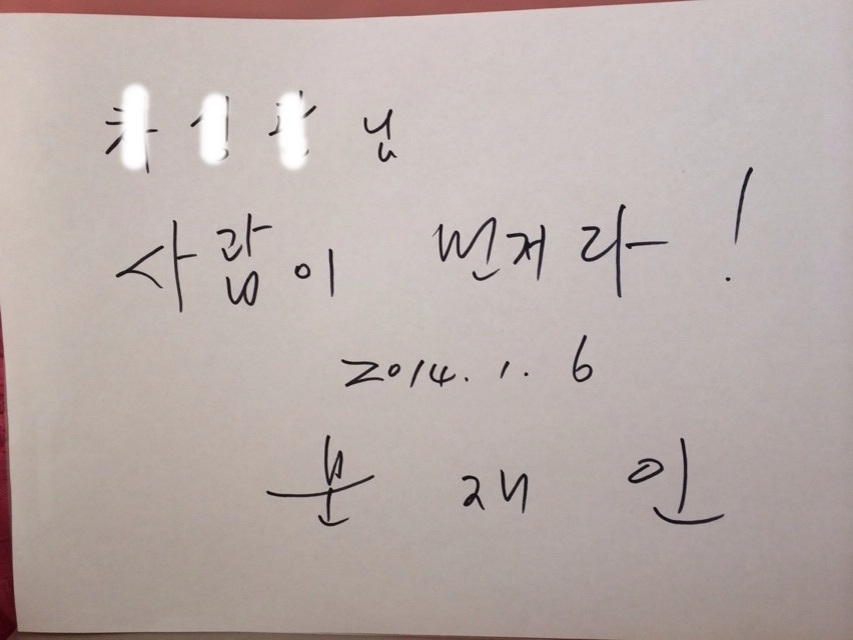 님
사람이 먼저라!
2014. 1. 6
문 재 인